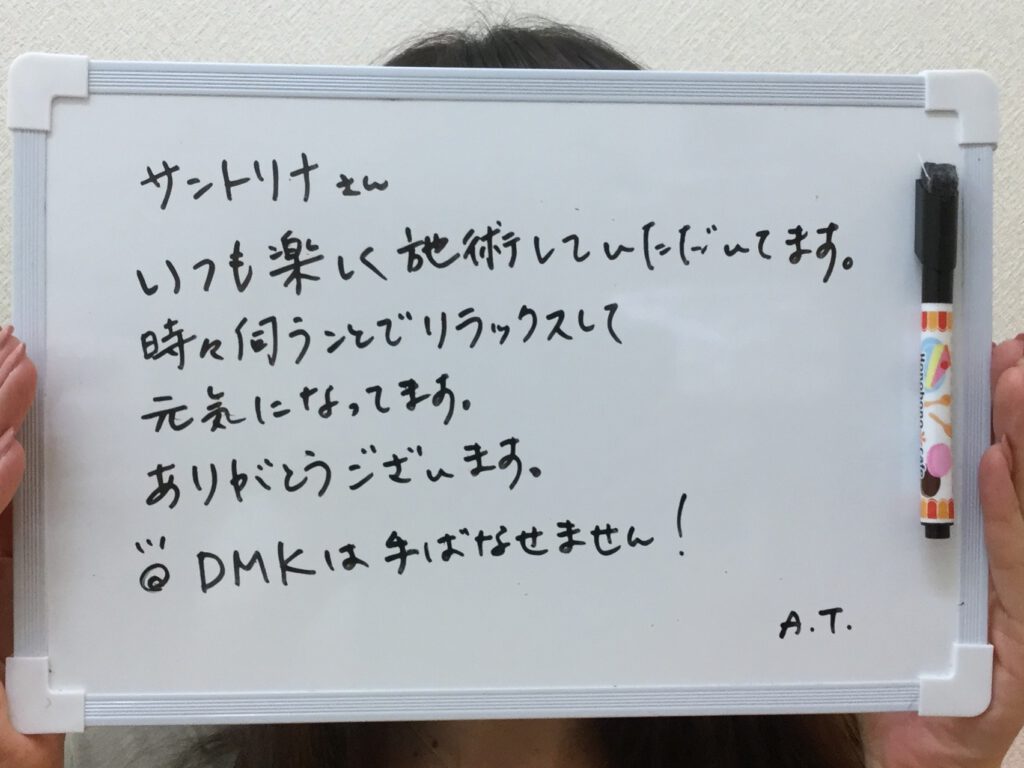 サントリナさん
いつも楽しく施術していただいてます。
時々伺うことでリラックスして
元気になってます。
ありがとうございます。
DMKは手ばなせません!
A.T.